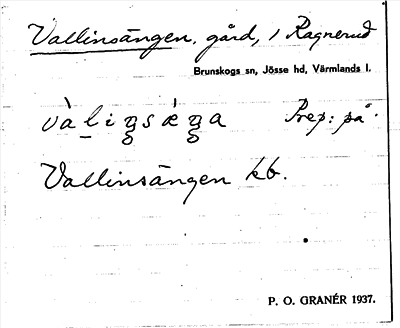 Vallinsängen, gård, i Ragnerud
Brunskogs sn, Jösse hd, Värmlands l.
vàliŋsǽŋa Prep: på.
Vallinsängen kb.
P. O. GRANÉR 1937.